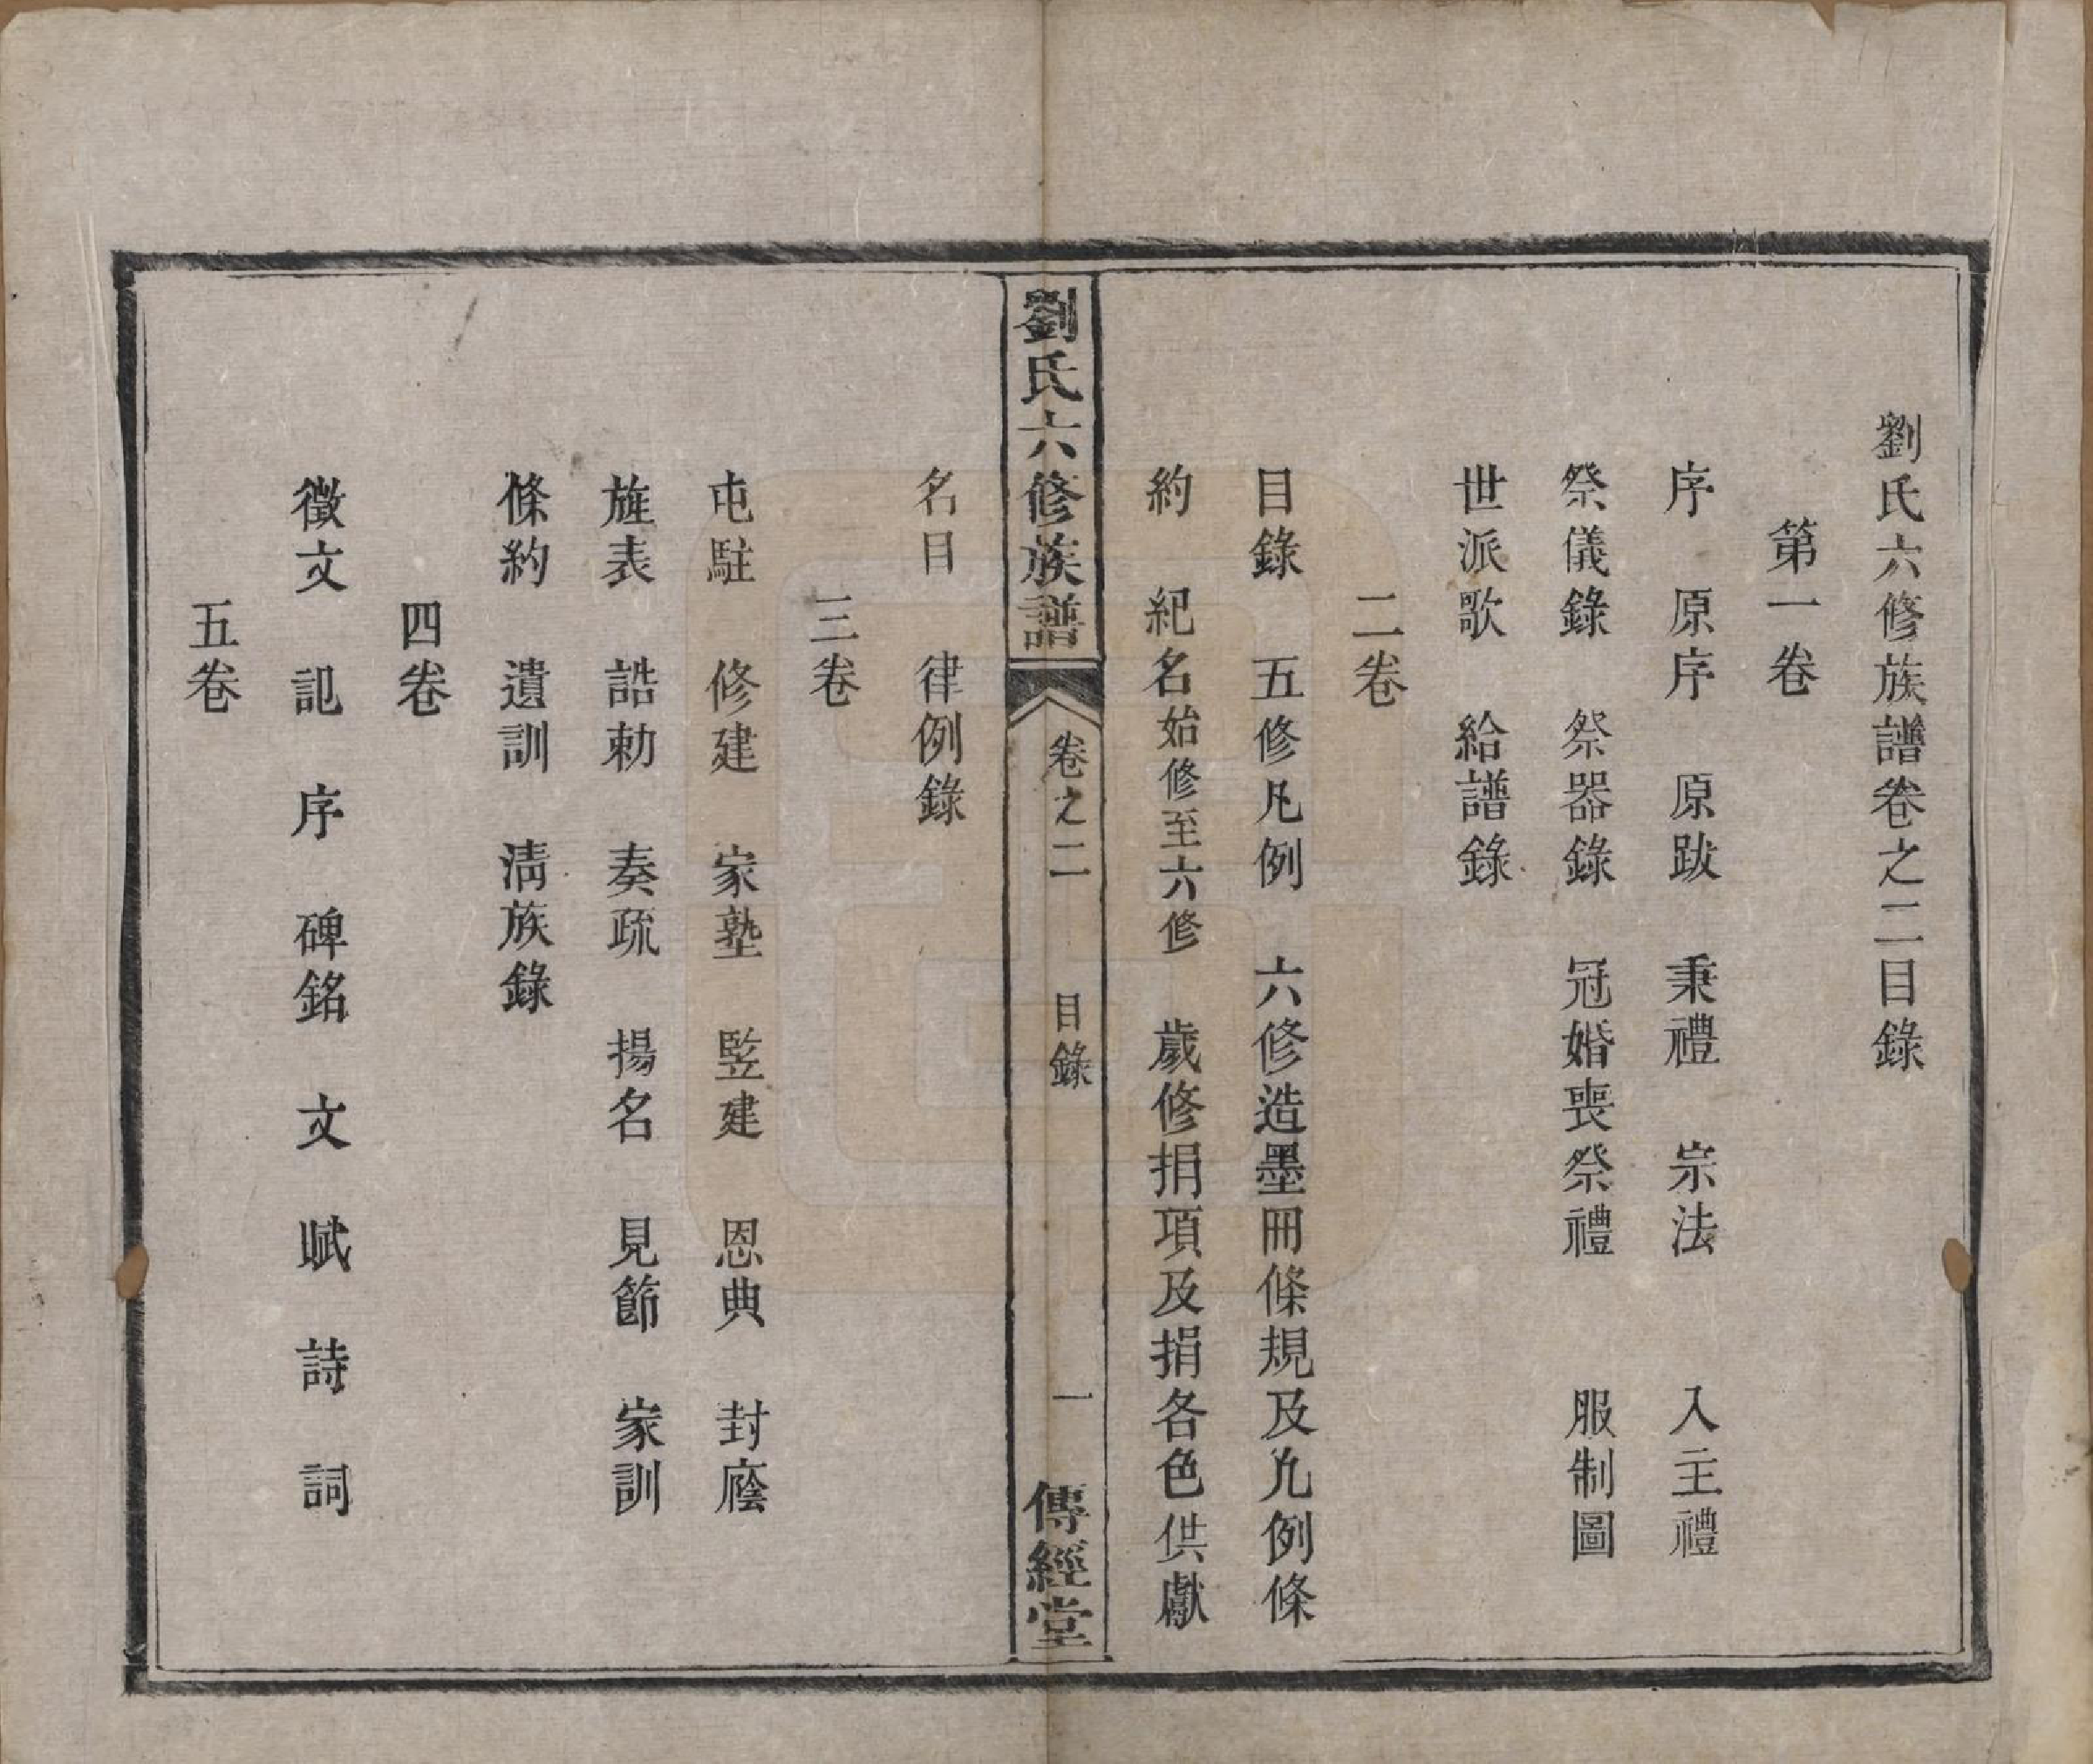 劉氏六修族譜卷之二目錄
第一卷
序 原序 原跋 秉禮 宗法 入主禮
祭儀錄 祭器錄 冠婚喪祭禮 服制圖
世派歌 給譜錄
二卷
目錄 五修凡例 六修造墨冊條規及凢例條
約 紀名始修至六修 歲修捐項及捐各色供獻
劉氏六修族譜 卷之二 目錄 一 傳經堂
名目 律例錄
三卷
屯駐 修建 家塾 竪建 恩典 封廕
旌表 誥勅 奏疏 揚名 見節 家訓
條約 遺訓 清族錄
四卷
徵文 記 序 碑銘 文 賦 詩 詞
五卷